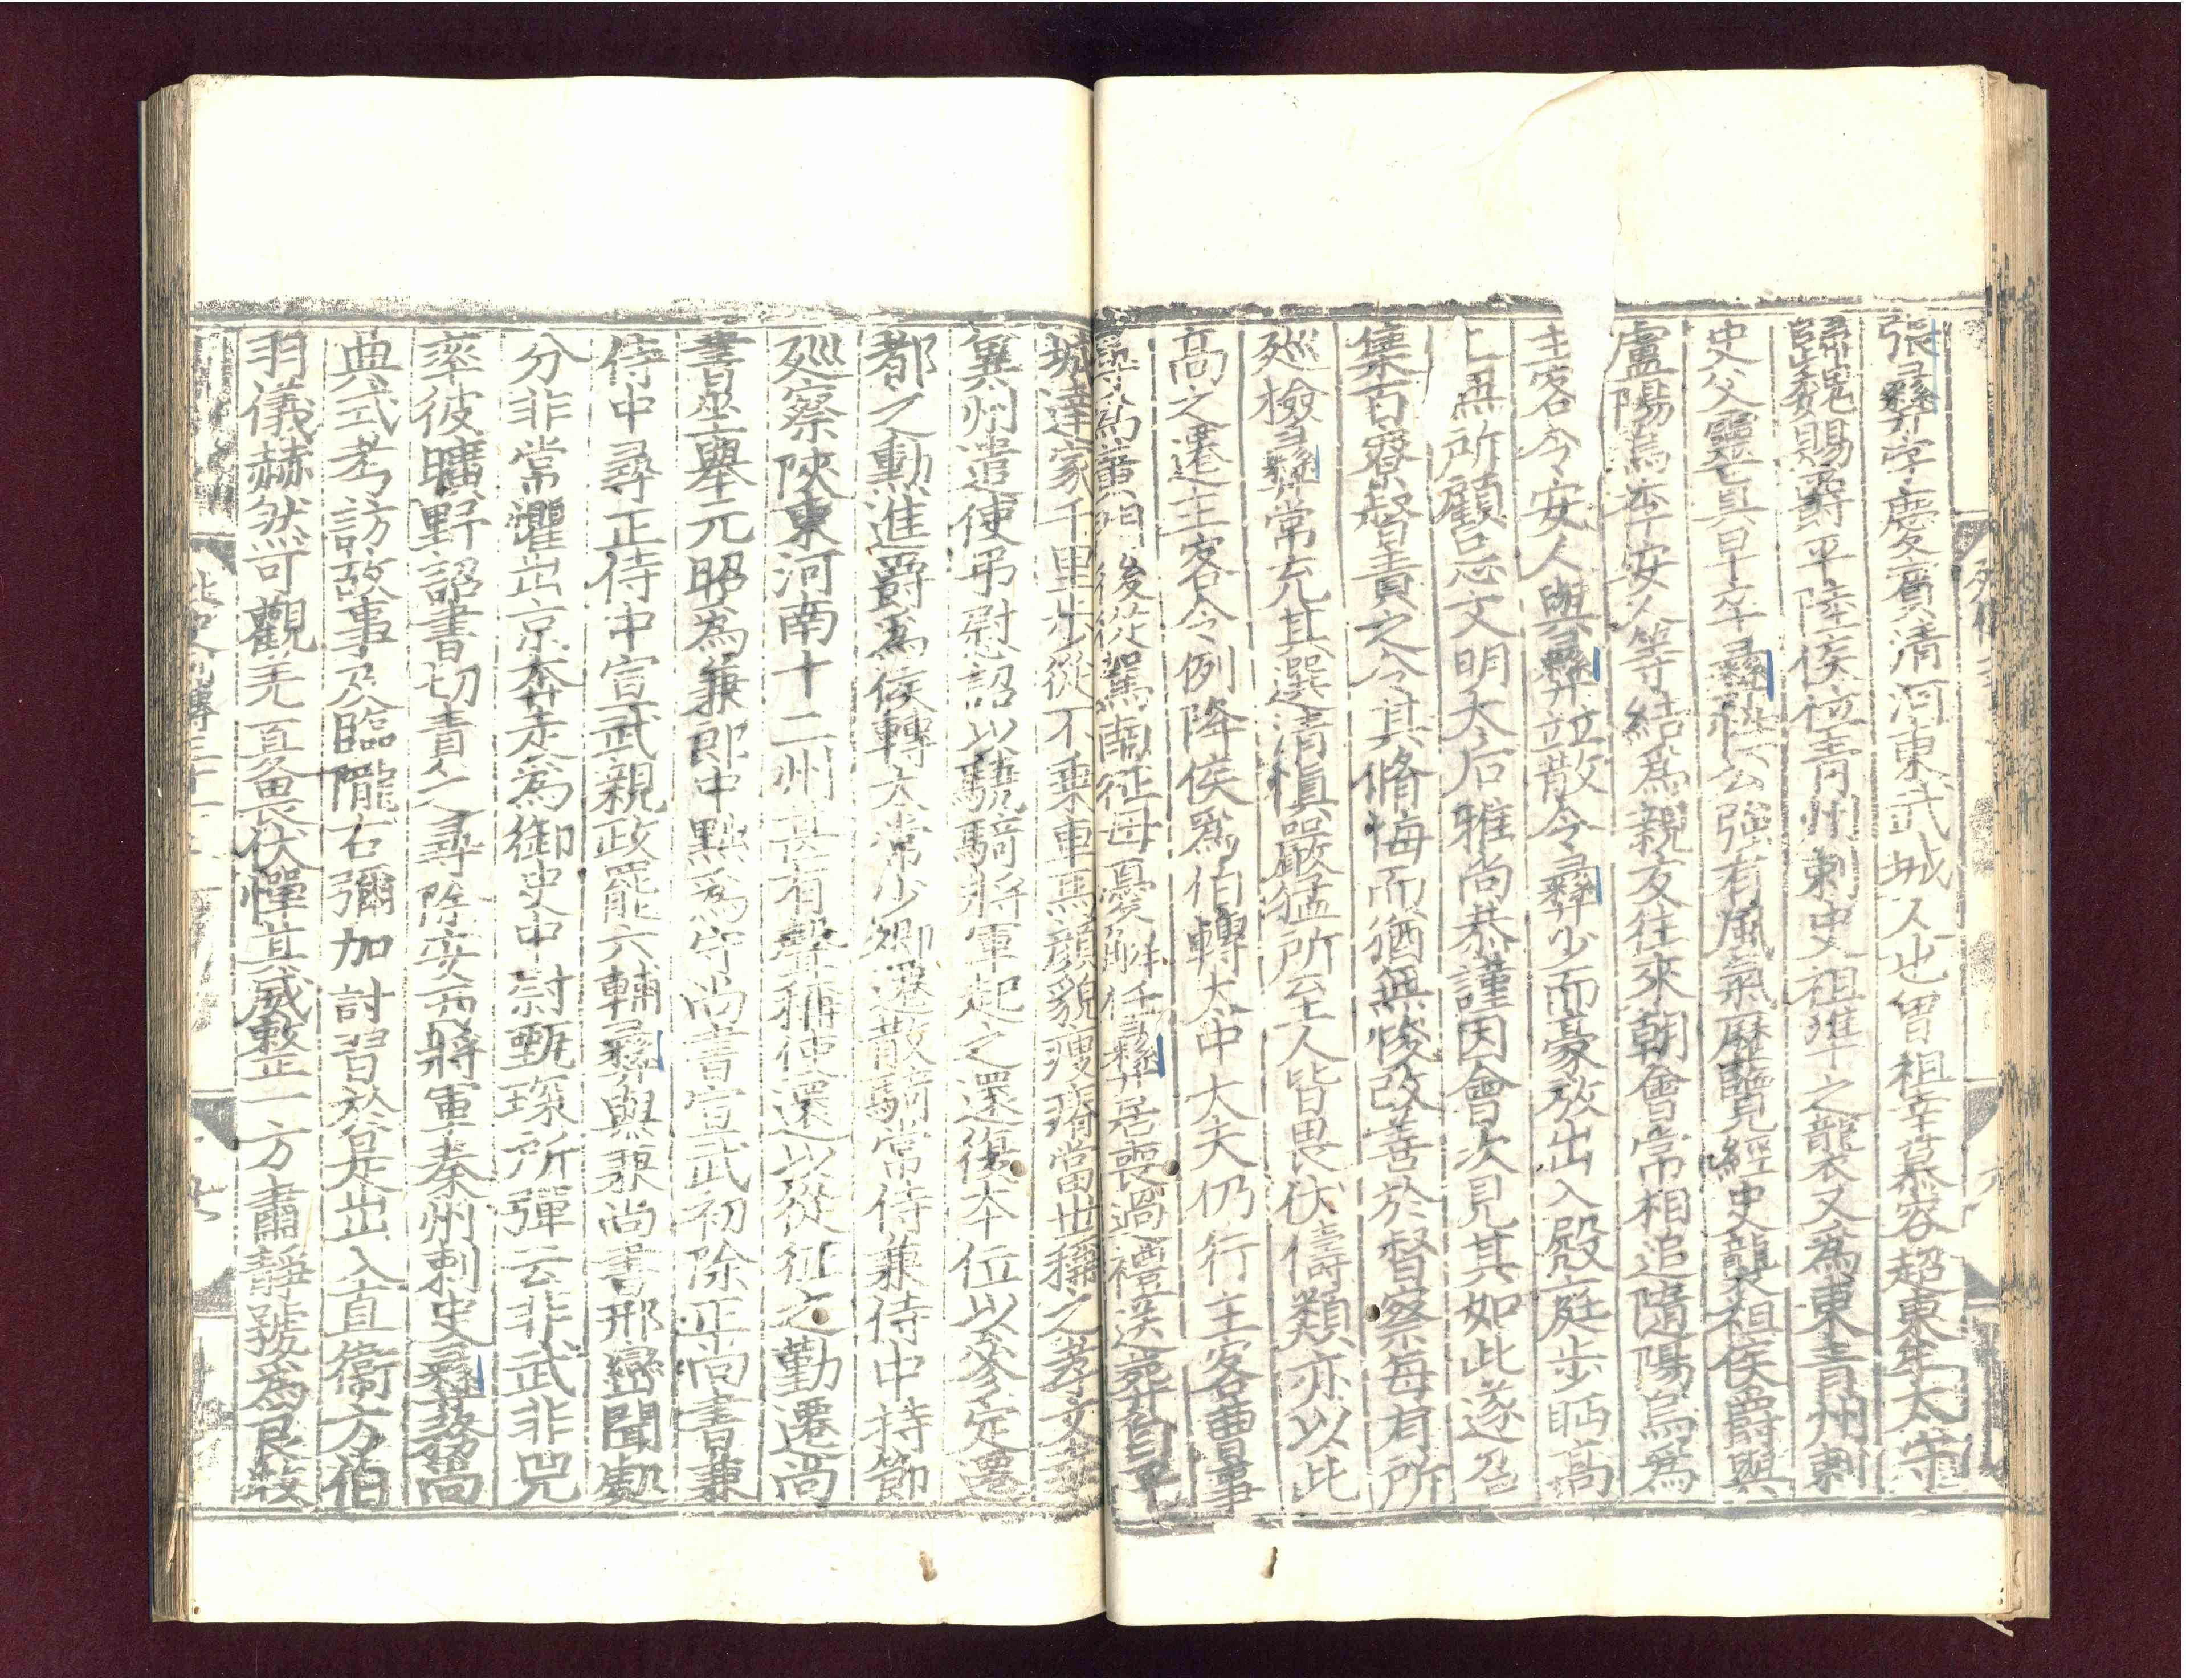 張彞字慶賓清河東武城人也曾祖幸慕容超東牟太守
歸魏賜爵平陸侯位青州刺史祖準之襲又爲東青州刺
史父靈真早卒彞性公強有風氣歷覽經史襲祖侯爵與
盧陽烏李安人等結爲親友往來朝會常相追隨陽烏爲
主客令安人與彞並散令彞少而豪放出入殿庭步眄高
上無所顧忌文明太后雅尚恭謹因會次見其如此遂召
集百寮督責之令其脩悔而猶無悛改善於督察每有所
廵檢彞常充其選清慎嚴猛所至人皆畏伏儔類亦以此
高之遷主客令例降侯爲伯轉太中大夫仍行主客曹事
尋爲黃門後從駕南征母憂解任彞居喪過禮送葬自平
城達家千里步從不乘車馬顔貌瘦瘠當世稱之孝文幸
冀州遣使弔慰詔以驍騎將軍起之還復本位以參定遷
都之勳進爵爲侯轉太常少卿遷散騎常侍兼侍中持節
廵察陝東河南十二州甚有聲稱使還以從征之勤遷尚
書坐舉元昭爲兼郎中黜爲守尚書宣武初除正尚書兼
侍中尋正侍中宣武親政罷六輔彞與兼尚書邢巒聞處
分非常懼出京奔走爲御史中尉甄琛所彈云非武非兕
率彼曠野詔書切責之尋除安西將軍秦州刺史彞務尚
典式考訪故事及臨隴右彌加討習於是出入直衞方伯
羽儀赫然可觀羌夏畏伏憚其威整一方肅靜號爲良牧
北史列傳三十一